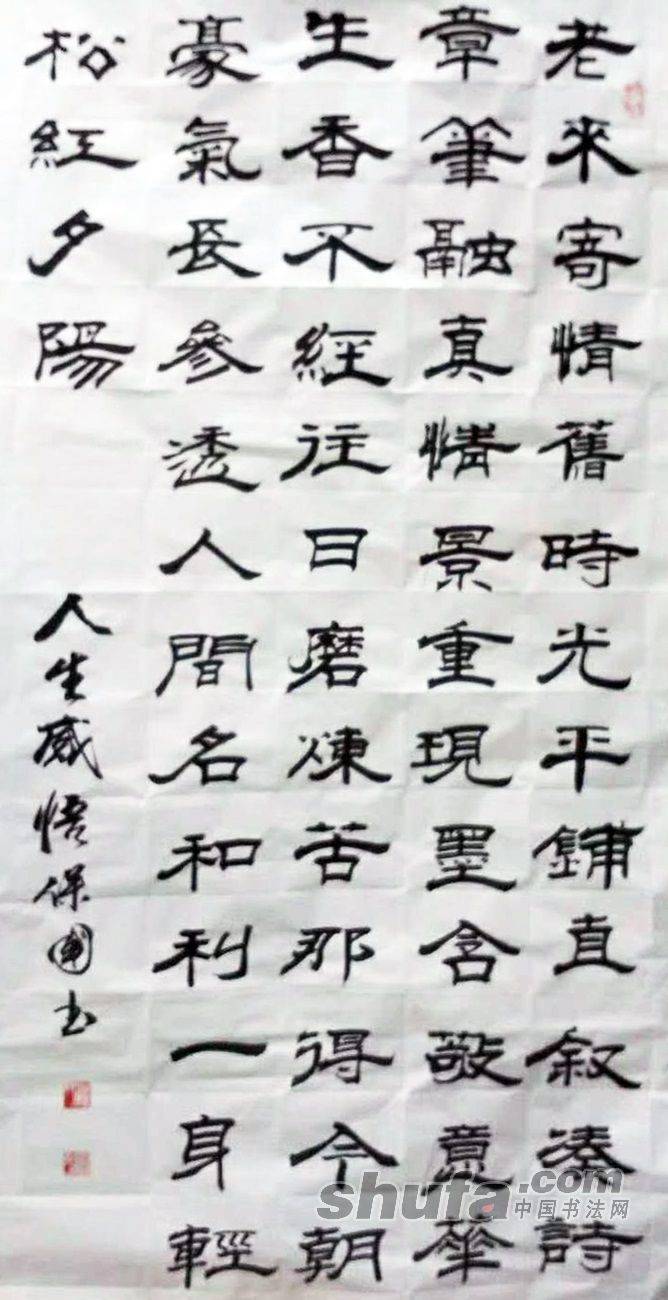 老來寄情舊時光平鋪直叙湊詩
章筆融真情景重現墨含敬意華
生香不經往日磨煉苦那得今朝
豪氣長參透人間名和利一身輕
松紅夕陽
人生感悟保國书
shufa.com
中国书法网